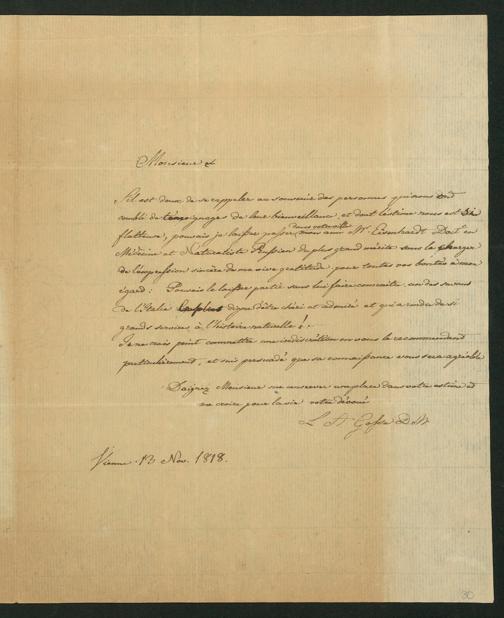 Monsieur &
S'il est doux de se rappeler au souvenir des personnes qui nous ont
comblé de témoignages de leur bienveillance, et dont l'estime nous est si
dans votre ville
flatteuse, pouvais je laisser passer mon ami Mr. Eisenhardt Doct. en
Médecine et Naturaliste Prussien du plus grand mérite sans le charger
de l'expression sincère de ma vive gratitude pour toutes vos bontés à mon
égard: Pouvais-je le laisser partir sans lui faire connaitre un des savans
de l'Italie digne d'être chéri et admiré et qui a rendu de si
grands services à l'histoire naturelle !
Je ne crois point commettre une indiscrétion en vous le recommandant
particulièrement, et suis persuadé que sa connaissance vous sera agréable
Daignez Monsieur me conserver une place dans votre estime et
me croire pour la vie votre dévoué
L A Gosse D.M.
Vienne 13 Nov. 1818.
30